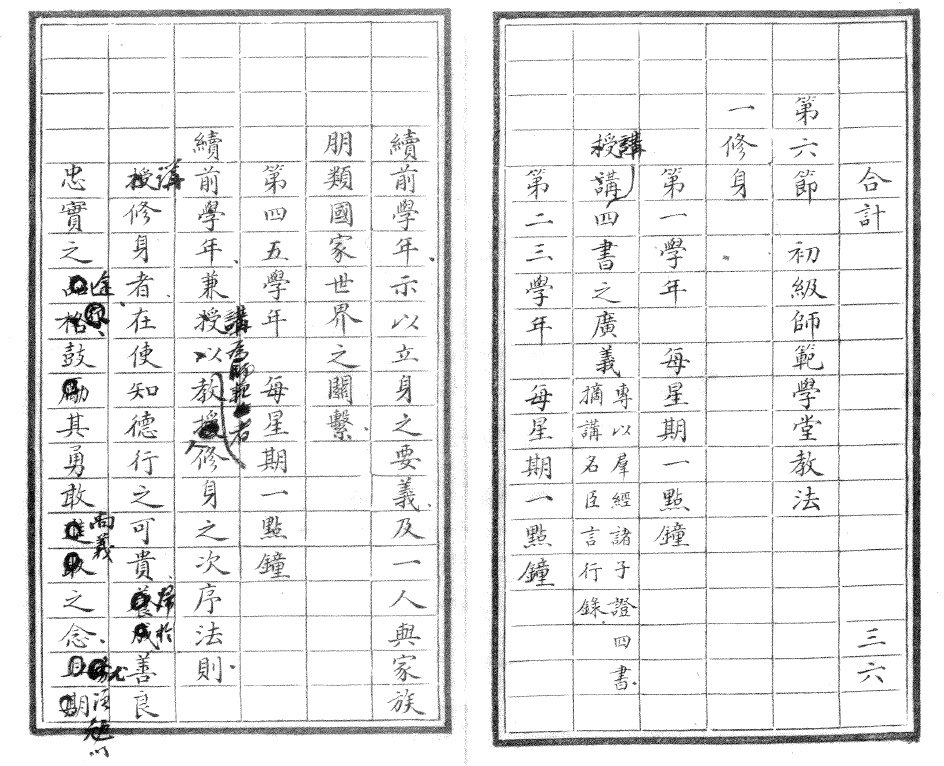 合計 三六
第六節 初級師範學堂教法
一修身
第一學年 每星期一點鐘
講授講四書之廣義專以羣經諸子證四書摘講名臣言行錄
第二三學年 每星期一點鐘
續前學年示以立身之要義及一人與家族
朋類國家世界之關繫
第四五學年 每星期一點鐘
續前學年兼授以教授修身之次序法則
講為師範者
講授修身者在使知德行之可貴養成善良
歸於
忠實之品格鼓勵其勇敢進取之念且期
途
尚義